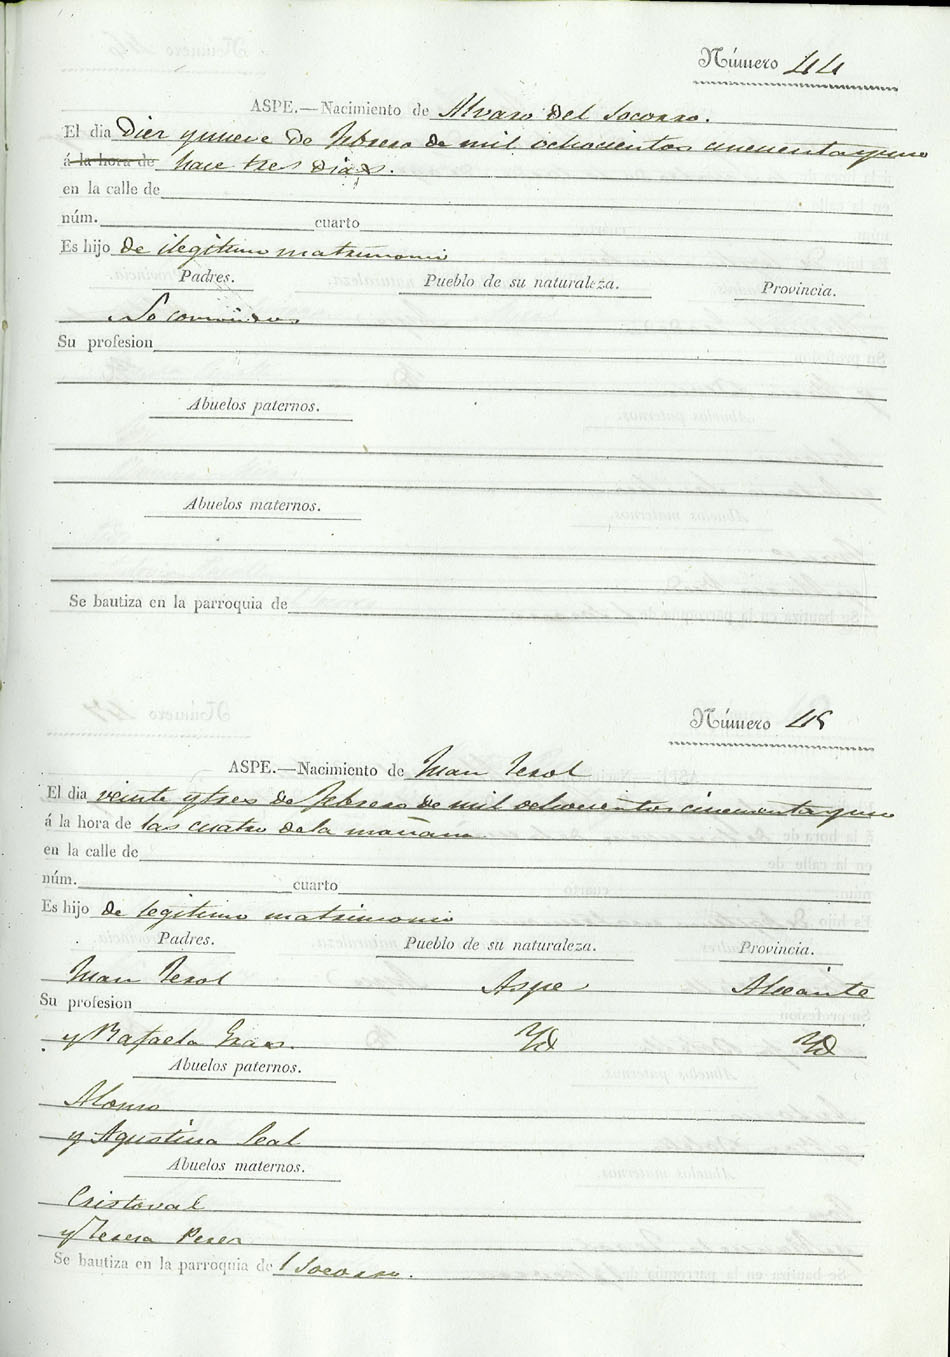 Número 44
ASPE.—Nacimiento de Alvaro del Socorro.
El dia diez y nueve de Febrero de mil ochocientos cincuenta y uno
á la hora de hace tres dias.
en la calle de
núm. cuarto
Es hijo de ilegitimo matrimonio
Padres. Pueblo de su naturaleza. Provincia.
Su profesion
Abuelos paternos.
Abuelos maternos.
Se bautiza en la parroquia de
Número 45
ASPE.—Nacimiento de Juan Terol
El dia veinte y tres de Febrero de mil ochocientos cincuenta y uno
á la hora de las cuatro de la mañana
en la calle de
núm. cuarto
Es hijo de legitimo matrimonio
Padres. Pueblo de su naturaleza. Provincia.
Juan Terol Aspe Alicante
Su profesion
y Rafaela Gras. Yd Yd
Abuelos paternos.
Alonso
y Agustina Leal
Abuelos maternos.
Cristoval
y Teresa Perez
Se bautiza en la parroquia de l Socorro.